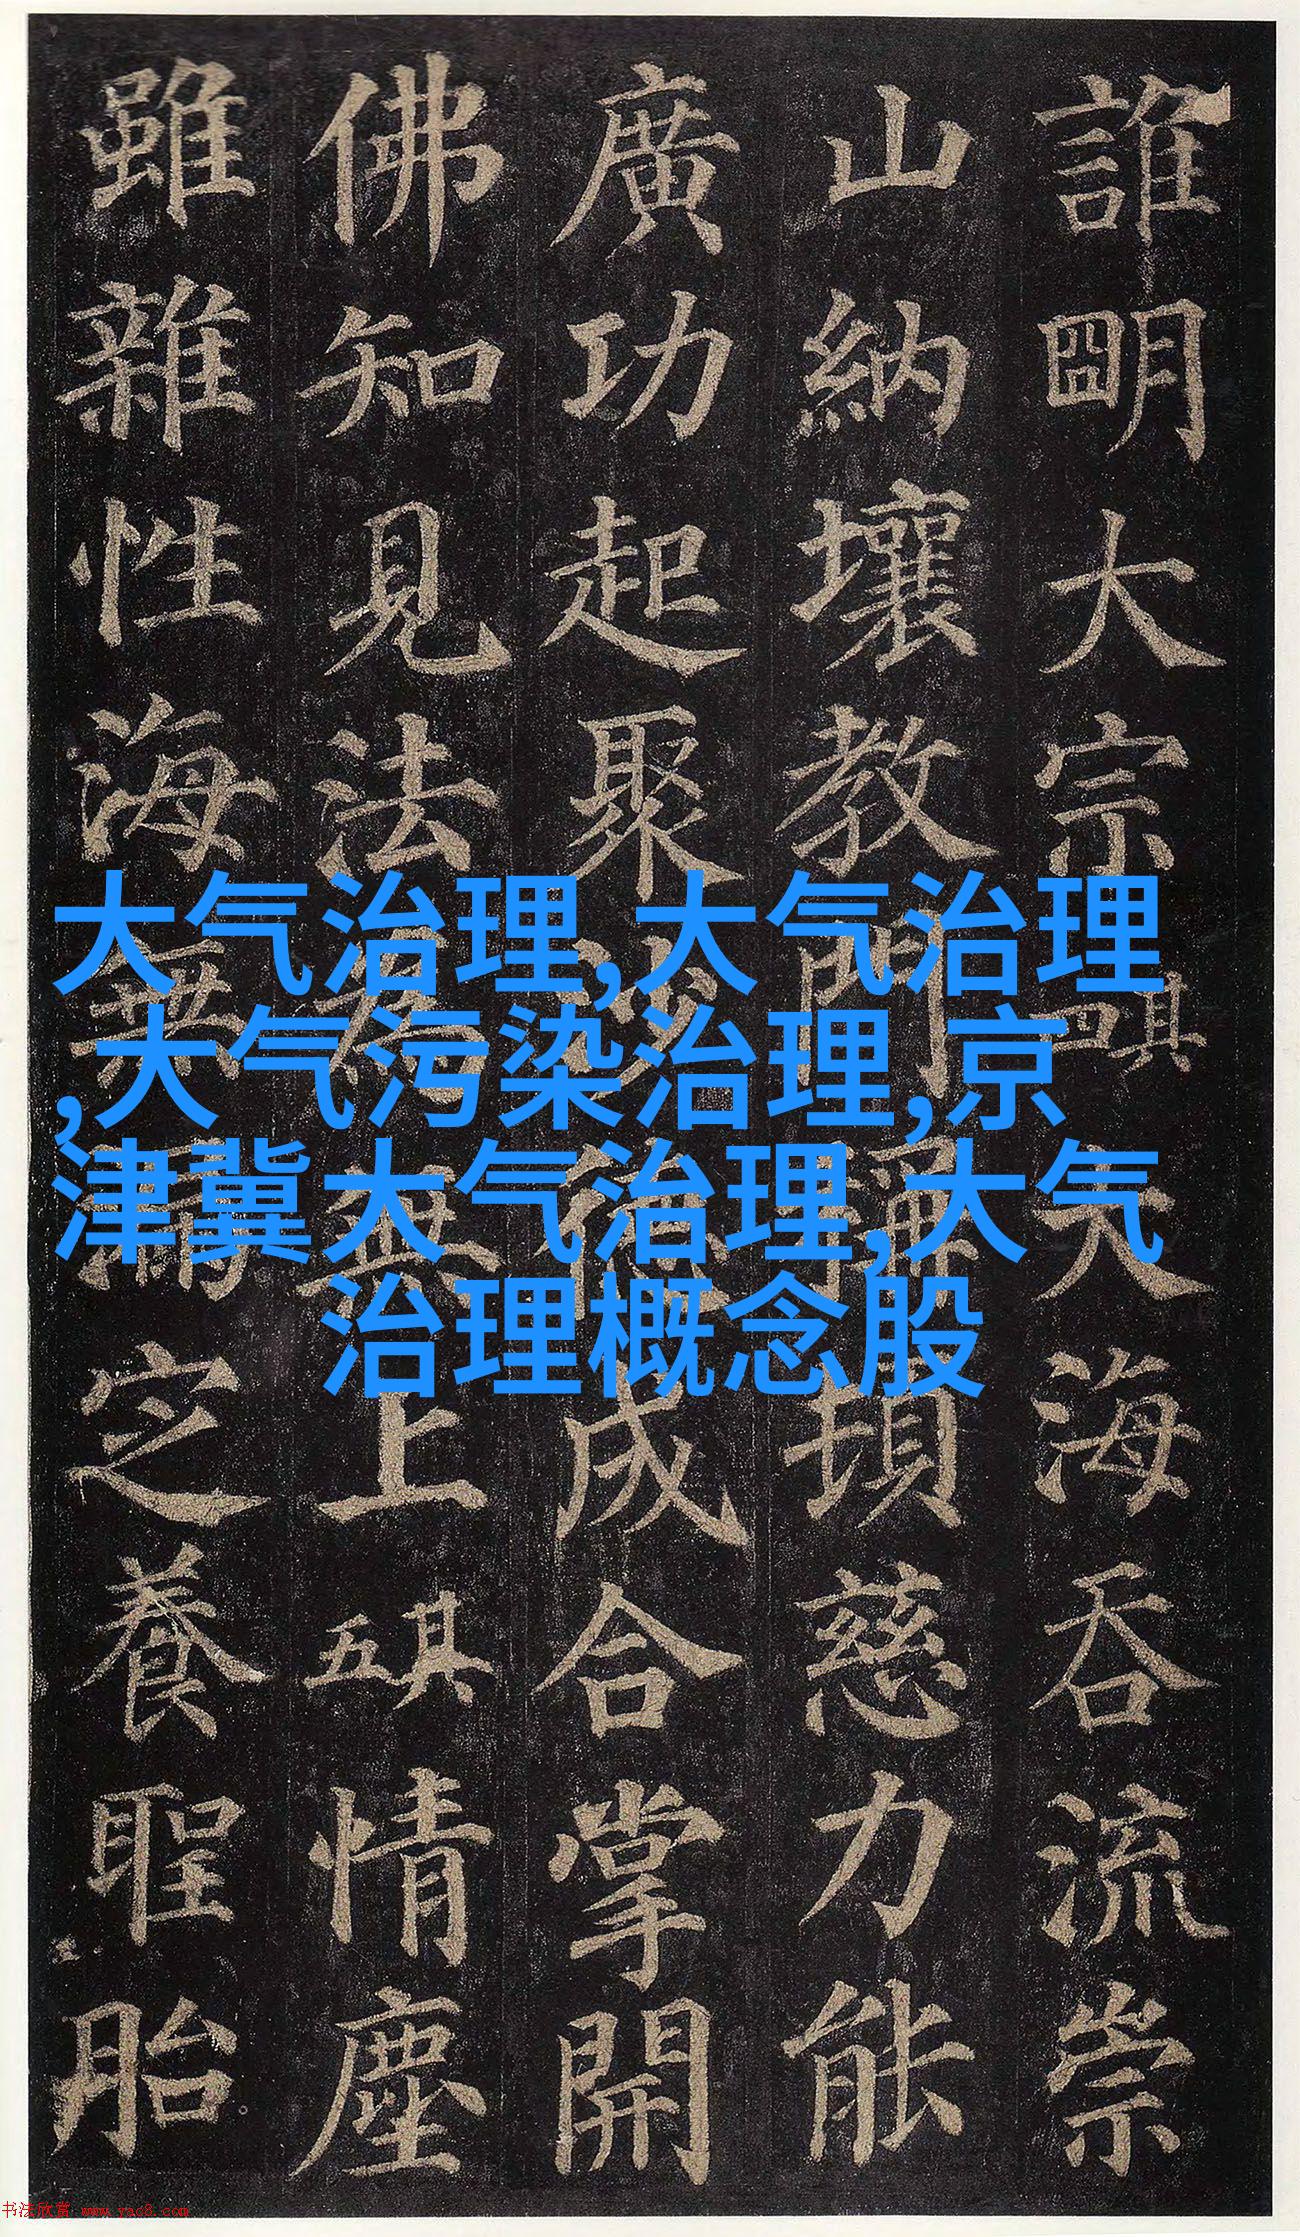 誰明大宗其四大海吞流崇
山納壤教門稱頓慈力能
廣功起聚沙德成合掌開
佛知見法為無上其五情塵
雖雜性海無漏定養聖胎
大气治理,大气治理
,大气污染治理,京
津冀大气治理,大气
治理概念股
书法欣赏 www.yac8.com